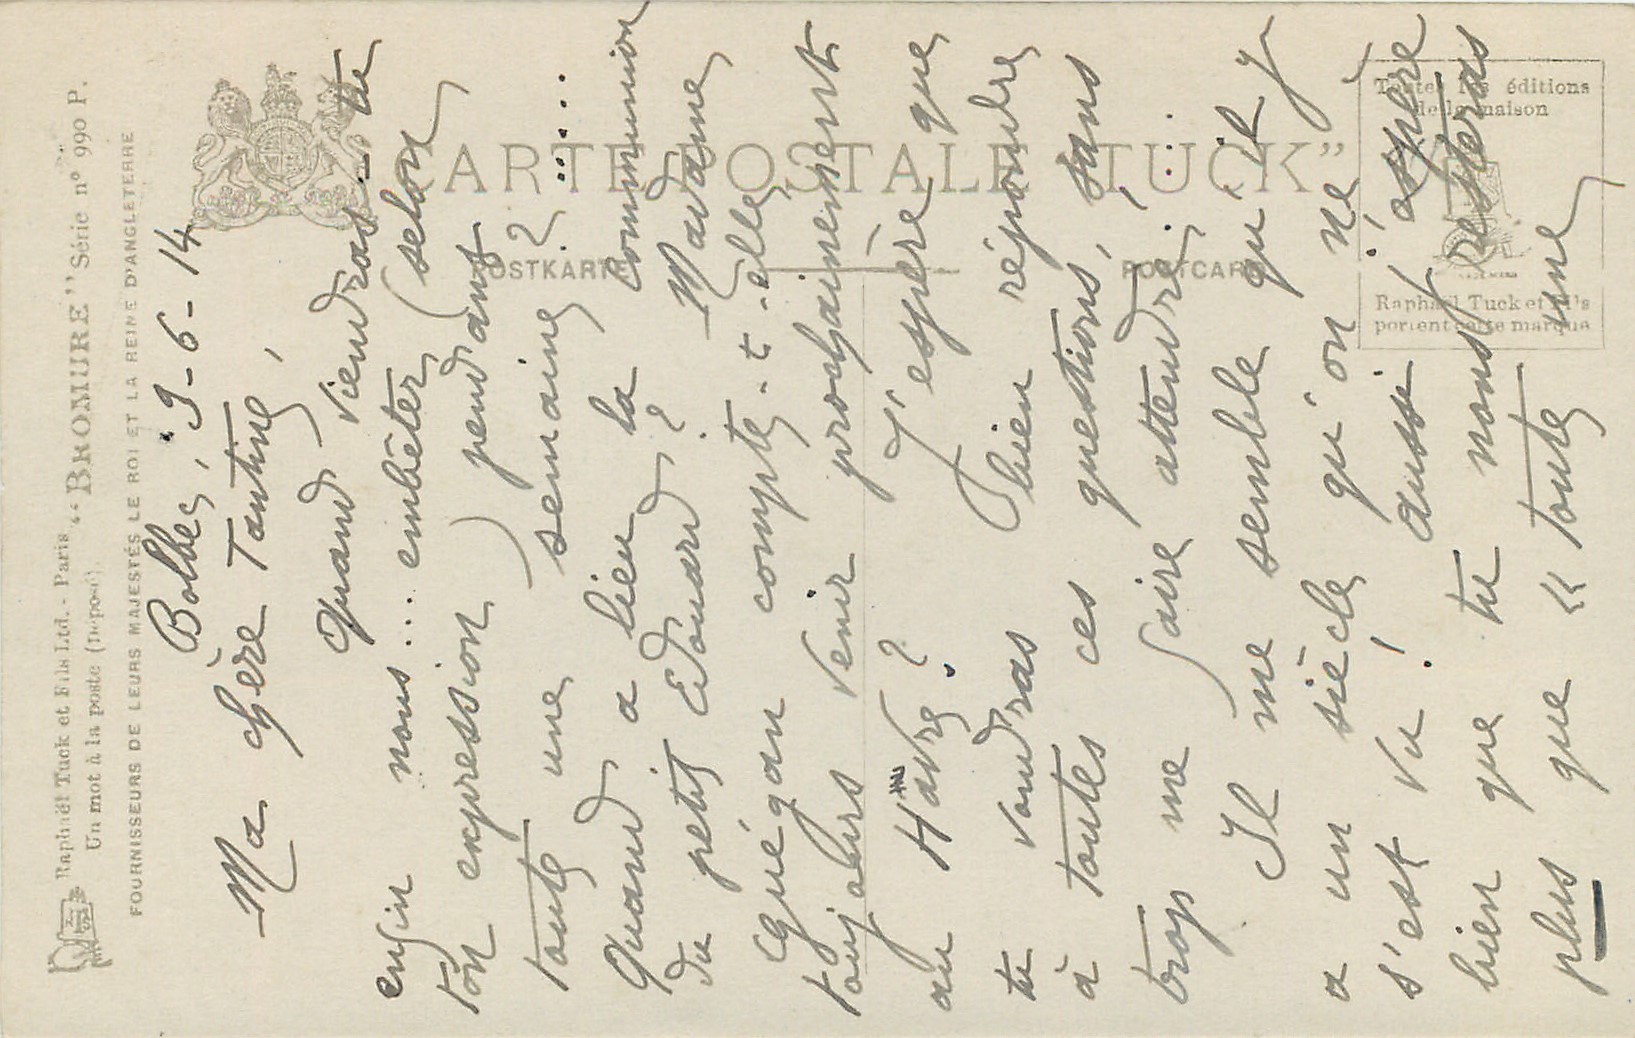 Raphaël Tuck et Fils Ltd. - Paris. “BROMURE” Série n° 990 P.
Un mot à la poste (Déposé).
FOURNISSEURS DE LEURS MAJESTÉS LE ROI ET LA REINE D'ANGLETERRE
CARTE POSTALE “TUCK”
POSTKARTE
POSTCARD
Toutes les éditions
de la maison
Raphaël Tuck et Fils
portent cette marque
Bolbec, 9-6-14
Ma chère Tantine,
Quand viendras-tu
enfin nous... embêter (selon
ton expression) pendant
toute une semaine ? .......
Quand a lieu la communion
du petit Edouard ? Madame
Guégan compte-t-elle
toujours venir prochainement
au Havre ? J'espère que
tu voudras bien répondre
à toutes ces questions, sans
trop me faire attendre. ....
Il me semble qu'il y
a un siècle qu'on ne
s'est vu ! aussi j'espère
bien que tu nous resteras
plus que « toute une